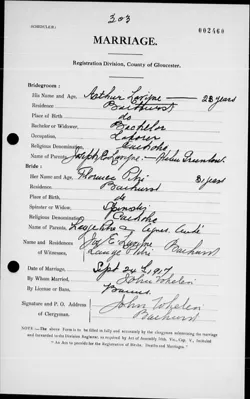 303
(SCHEDULE C)
002460
MARRIAGE.
Registration Division, County of Gloucester.
Bridegroom:
His Name and Age, Arthur Lavigne 28 years
Residence Bathurst
Place of Birth do
Bachelor or Widower, Bachelor
Occupation, Laborer
Religious Denomination Catholic
Name of Parents, Joseph Lavigne
Bride:
Her Name and Age, Florence Pitre years
Residence Bathurst
Place of Birth, do
Spinster or Widow, Spinster
Religious Denomination Catholic
Name of Parents,
Names and Residences Jos E Lavigne Bathurst
of Witnesses, Pitre
Date of Marriage, Sept 24 1917
By Whom Married, John Whelan
By License or Bans, Banns
Signature and P. O. Address John Whelan
of Clergyman, Bathurst
NOTE:—The above Form is to be filled in fully and accurately by the clergyman solemnizing the marriage
and forwarded to the Division Registrar as required by Act of Assembly
"An Act to provide for the Registration of Births, Deaths and Marriages."